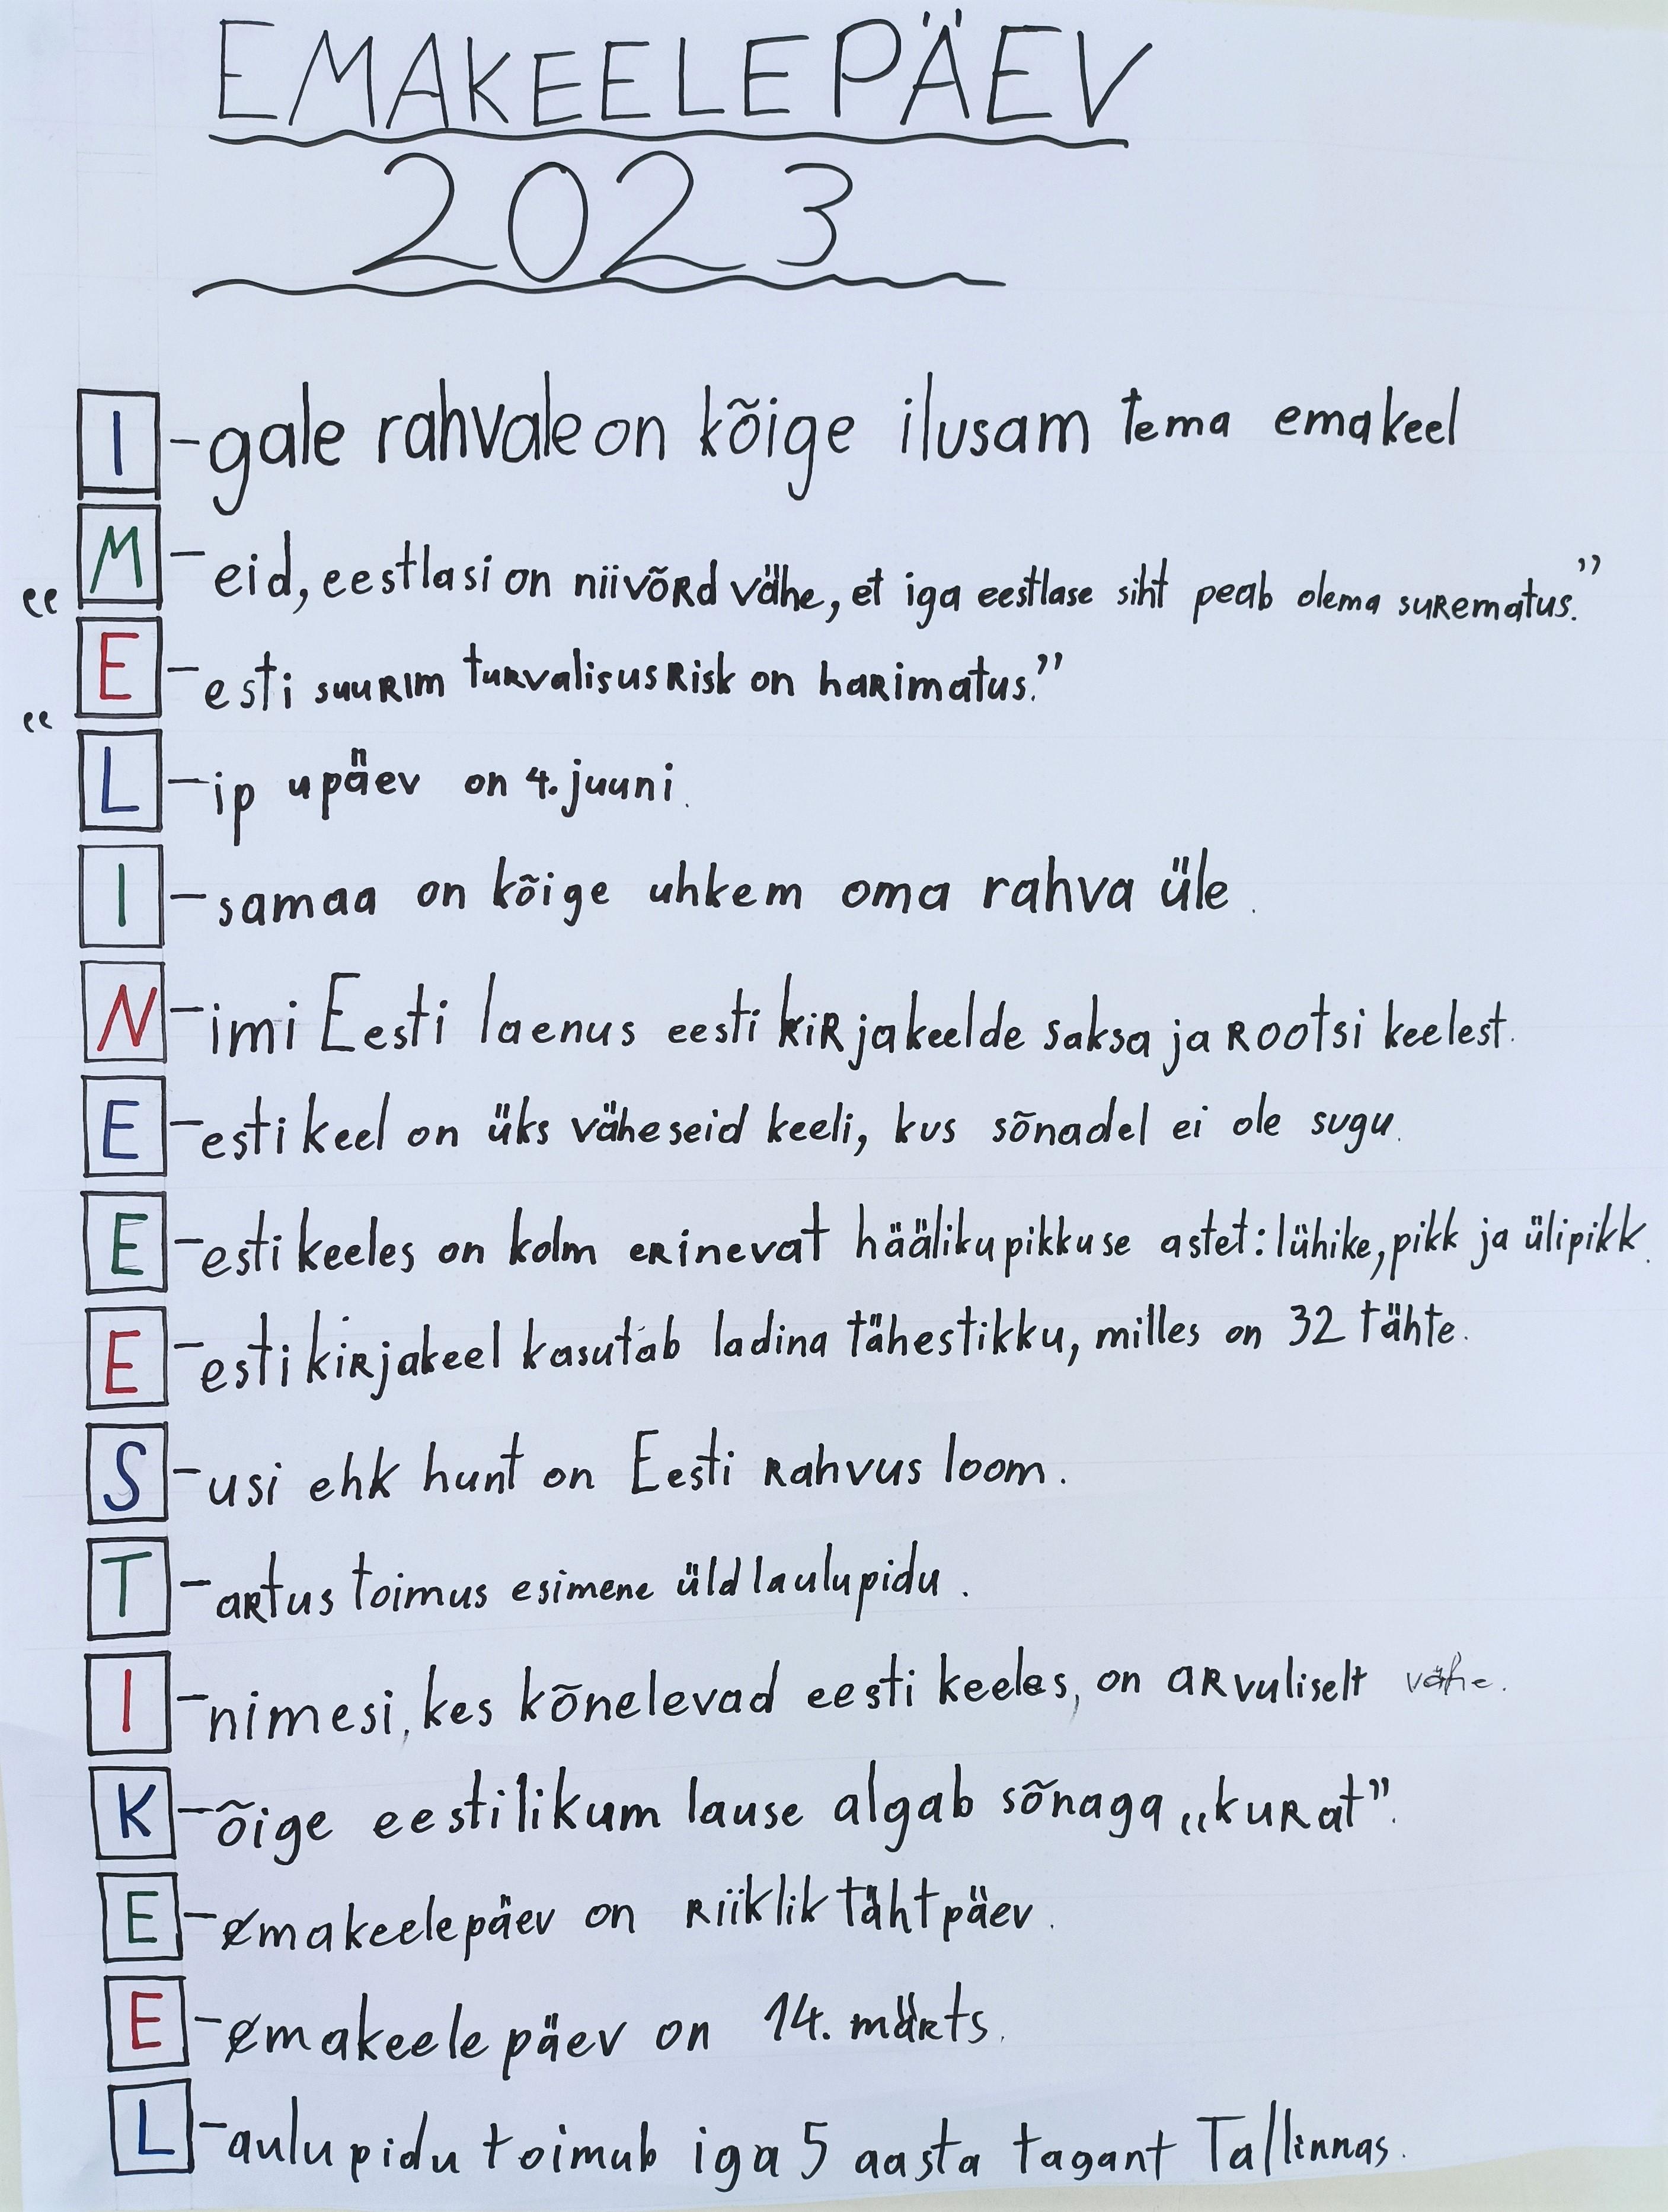 EMAKEELEPÄEV
2023
I - gale rahvale on kõige ilusam tema emakeel
"M - eid, eestlasi on niivõrd vähe, et iga eestlase siht peab olema surematus."
"E - esti suurim turvalisusrisk on harimatus."
L - ipupäev on 4. juuni.
I - samaa on kõige uhkem oma rahva üle.
N - imi Eesti laenus eesti kirjakeelde saksa ja rootsi keelest.
E - esti keel on üks väheseid keeli, kus sõnadel ei ole sugu.
E - esti keeles on kolm erinevat häälikupikkuse astet: lühike, pikk ja ülipikk.
E - esti kirjakeel kasutab ladina tähestikku, milles on 32 tähte.
S - usi ehk hunt on Eesti rahvus loom.
T - artus toimus esimene üldlaulupidu.
I - nimesi, kes kõnelevad eesti keeles, on arvuliselt vähe.
K - õige eestilikum lause algab sõnaga „kurat”.
E - emakeelepäev on riiklik tähtpäev.
E - emakeelepäev on 14. märts.
L - aulupidu toimub iga 5 aasta tagant Tallinnas.